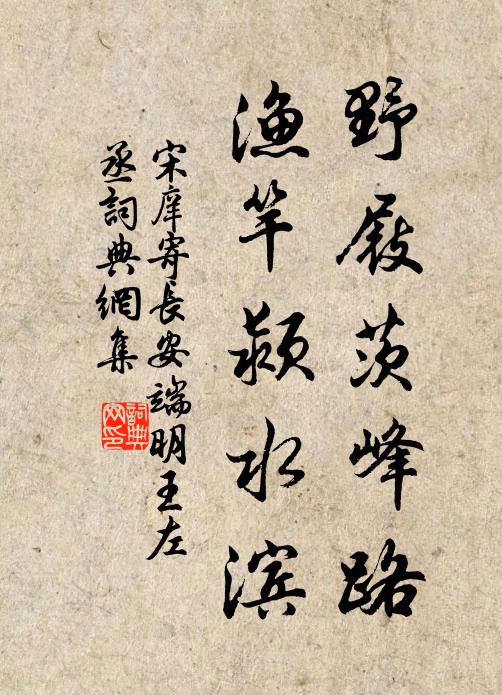 野屐茨峰路
渔竿颍水滨
宋庠寄长安端明王左
丞詞典網集
詞典网印